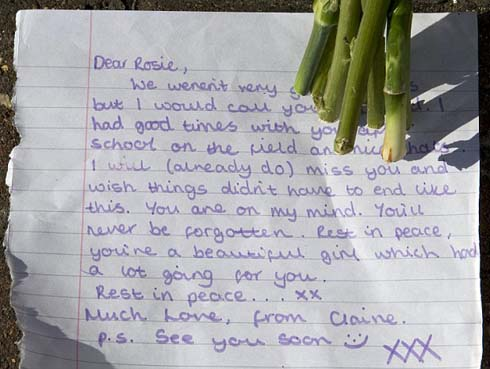 Dear Rosie,
We weren't very s
but I would call you
had good times with you
school on the field and
I will (already do) miss you and
wish things didn't have to end like
this. You are on my mind. You'll
never be forgotten. Rest in peace,
you're a beautiful girl which had
a lot going for you.
Rest in peace... xx
Much Love, from Claine.
p.s. See you soon ☺ XXX